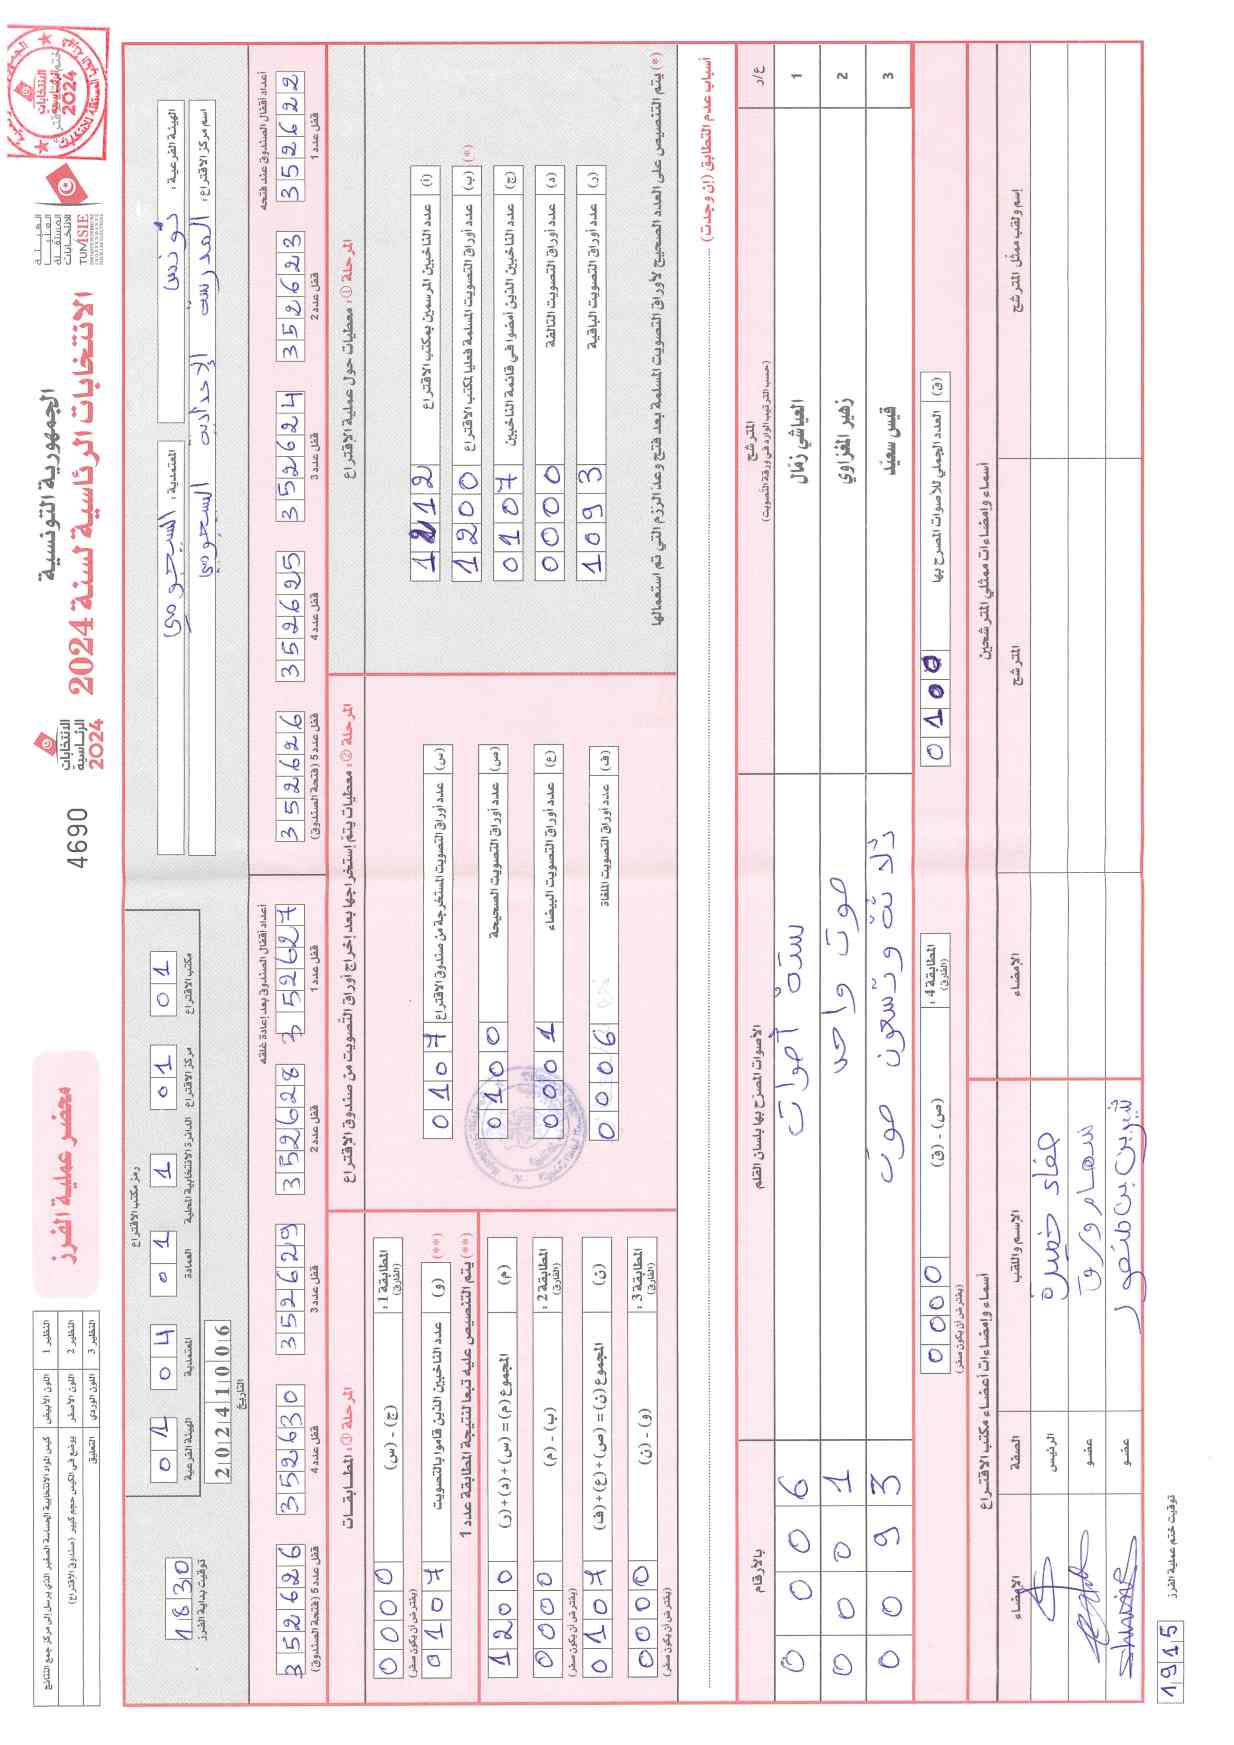 الجمهورية التونسية
الانتخابات الرئاسية لسنة 2024
الهيئة العليا المستقلة للانتخابات
TUNISIE
الانتخابات الرئاسية 2024
4690
محضر عملية الفرز
النظير 1 اللون الأبيض كيس المواد الانتخابية الحساسة الصغير الذي يرسل إلى مركز جمع النتائج
النظير 2 اللون الأصفر يوضع في الكيس حجم كبير (صندوق الاقتراع)
النظير 3 اللون الوردي التعليق
الهيئة الفرعية : تونس
المعتمدية : السيجومي
اسم مركز الاقتراع : المدرسة الإعدادية السيجومي
رمز مكتب الاقتراع
مكتب الاقتراع 01
مركز الاقتراع 01
الدائرة الانتخابية المحلية 1
العمادة 01
المعتمدية 04
الهيئة الفرعية 01
20241006
التاريخ
1830
توقيت بداية الفرز
أعداد أقفال الصندوق عند فتحه
352622 قفل عدد 1
352623 قفل عدد 2
352624 قفل عدد 3
352625 قفل عدد 4
352626 قفل عدد 5 (فتحة الصندوق)
أعداد أقفال الصندوق بعد إعادة غلقه
352627 قفل عدد 1
352628 قفل عدد 2
352629 قفل عدد 3
352630 قفل عدد 4
352626 قفل عدد 5 (فتحة الصندوق)
المرحلة ① : معطيات حول عملية الاقتراع
(أ) عدد الناخبين المرسمين بمكتب الاقتراع 1212
(*) (ب) عدد أوراق التصويت المسلمة فعليا لمكتب الاقتراع 1200
(ج) عدد الناخبين الذين أمضوا في قائمة الناخبين 0107
(د) عدد أوراق التصويت التالفة 0000
(ر) عدد أوراق التصويت الباقية 1093
(*) يتم التنصيص على العدد الصحيح لأوراق التصويت المسلمة بعد فتح وعد الرزم التي تم استعمالها
المرحلة ② : معطيات يتم إستخراجها بعد إخراج أوراق التصويت من صندوق الاقتراع
(س) عدد أوراق التصويت المستخرجة من صندوق الاقتراع 0107
(ص) عدد أوراق التصويت الصحيحة 0100
(ع) عدد أوراق التصويت البيضاء 0001
(ف) عدد أوراق التصويت الملغاة 0006
المرحلة ③ : المطابقات
المطابقة 1 : (الفارق) (ج) - (س) 0000
(يفترض أن يكون صفر)
(**) (و) عدد الناخبين الذين قاموا بالتصويت 0107
(**) يتم التنصيص عليه تبعا لنتيجة المطابقة عدد 1
(م) المجموع (م) = (س) + (د) + (ر) 1200
المطابقة 2 : (الفارق) (ب) - (م) 0000
(يفترض أن يكون صفر)
(ن) المجموع (ن) = (ص) + (ع) + (ف) 0107
المطابقة 3 : (الفارق) (و) - (ن) 0000
(يفترض أن يكون صفر)
أسباب عدم التطابق (إن وجدت) :
ع/ر المترشح (حسب الترتيب الوارد في ورقة التصويت) الأصوات المصرح بها بلسان القلم بالأرقام
1 العياشي زمّال ستة أصوات 0006
2 زهير المغزاوي صوت واحد 0001
3 قيس سعيّد ثلاثة وتسعون صوت 0093
(ق) العدد الجملي للأصوات المصرح بها 0100
المطابقة 4 : (الفارق) (ص) - (ق) 0000
(يفترض أن يكون صفر)
أسماء وإمضاءات ممثلي المترشحين
إسم ولقب ممثل المترشح المترشح الإمضاء
أسماء وإمضاءات أعضاء مكتب الاقتراع
الإسم واللقب الصفة الإمضاء
الرئيس
عضو
شيرين بن منصور عضو
توقيت ختم عملية الفرز 1915